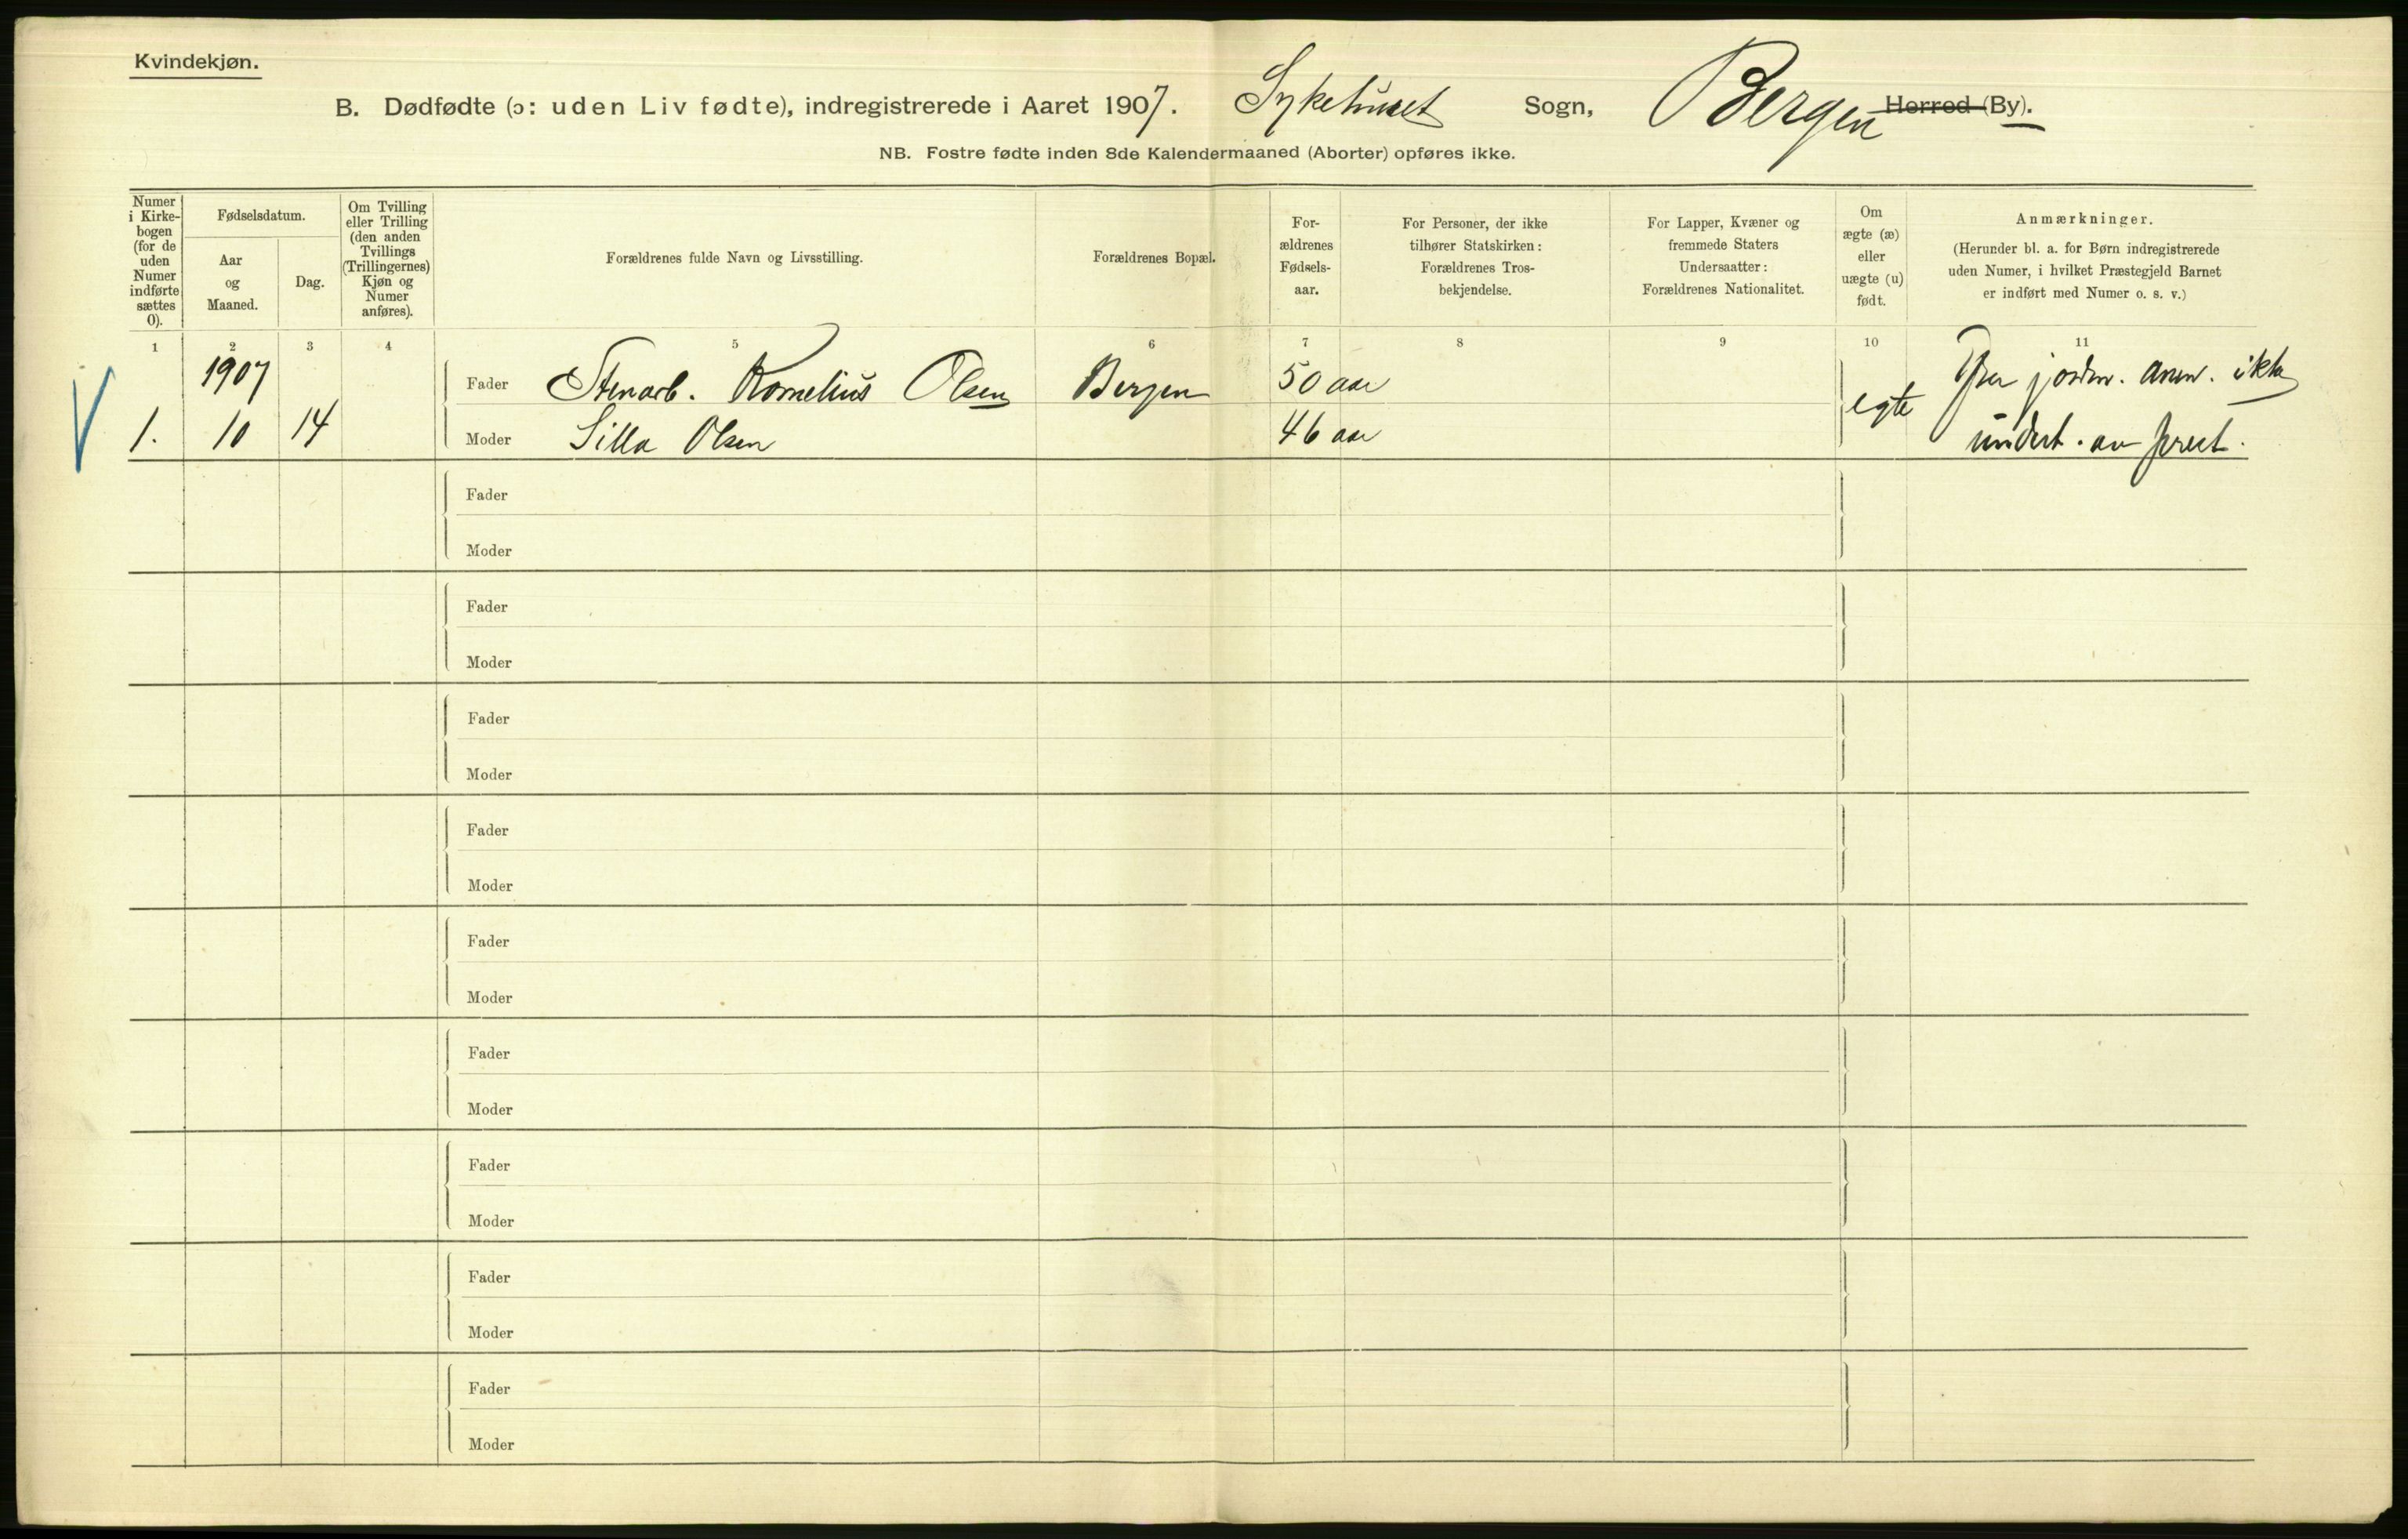 Kvindekjøn.
B. Dødfødte (ɔ: uden Liv fødte), indregistrerede i Aaret 1907. Sykehuset Sogn, Bergen Herred (By).
NB. Fostre fødte inden 8de Kalendermaaned (Aborter) opføres ikke.
Numer
i Kirke-
bogen
(for de
uden
Numer
indførte
sættes
0).
Fødselsdatum.
Aar
og
Maaned.
Dag.
Om Tvilling
eller Trilling
(den anden
Tvillings
(Trillingernes)
Kjøn og
Numer
anføres).
Forældrenes fulde Navn og Livsstilling.
Forældrenes Bopæl.
For-
ældrenes
Fødsels-
aar.
For Personer, der ikke
tilhører Statskirken:
Forældrenes Tros-
bekjendelse.
For Lapper, Kvæner og
fremmede Staters
Undersaatter:
Forældrenes Nationalitet.
Om
ægte (æ)
eller
uægte (u)
født.
Anmærkninger.
(Herunder bl. a. for Børn indregistrerede
uden Numer, i hvilket Præstegjeld Barnet
er indført med Numer o. s. v.)
1 2 3 4 5 6 7 8 9 10 11
1907 Fader Stenarb. Kornelius Olsen Bergen 50 aar egte jordm. anm. ikke
1. 10 14 Moder Silla Olsen 46 aar undert. av prest.
Fader
Moder
Fader
Moder
Fader
Moder
Fader
Moder
Fader
Moder
Fader
Moder
Fader
Moder
Fader
Moder
Fader
Moder